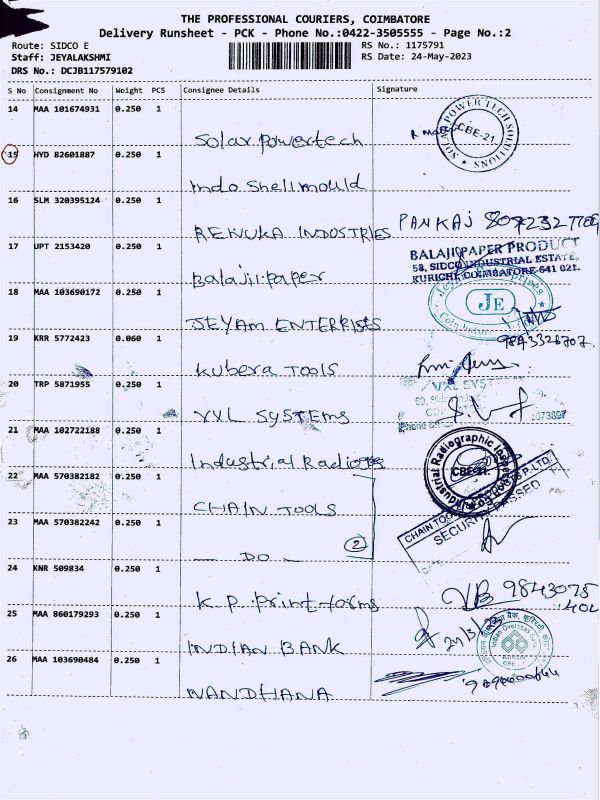 THE PROFESSIONAL COURIERS, COIMBATORE
Delivery Runsheet - PCK - Phone No.:0422-3505555 - Page No.:2
Route: SIDCO E RS No.: 1175791
Staff: JEYALAKSHMI RS Date: 24-May-2023
DRS No.: DCJB117579102
S No Consignment No Weight PCS Consignee Details Signature
14 MAA 101674931 0.250 1
Solar powertech SOLAR POWER TECH SOLUTIONS CBE-21.
15 HYD 82601887 0.250 1
Indo Shellmould
16 SLM 320395124 0.250 1
RENUKA INDOSTRIES PANKAJ
17 UPT 2153420 0.250 1
Balaji.paper BALAJI PAPER PRODUCT
58, SIDCO INDUSTRIAL ESTATE,
KURICHI, COIMBATORE-641 021.
18 MAA 103690172 0.250 1
JEYAM ENTERRISES JE
19 KRR 5772423 0.060 1 9843326707.
Kubera TOOLS
20 TRP 5871955 0.250 1 VXL SYSTEMS
VXL SYSTEMS
21 MAA 102722188 0.250 1
Industrial Radiogs Industrial Radiographic CBE-21.
22 MAA 570382182 0.250 1
CHAIN TOOLS CHAIN TOOLS P.LTD.
SECURITY PASSED
DATE
23 MAA 570382242 0.250 1
— DO — 2
24 KNR 509834 0.250 1
K.P. Print forms VB 9843075
404
25 MAA 860179293 0.250 1
INDIAN BANK Indian Overseas Bank CBE
26 MAA 103690484 0.250 1
NANDHANA